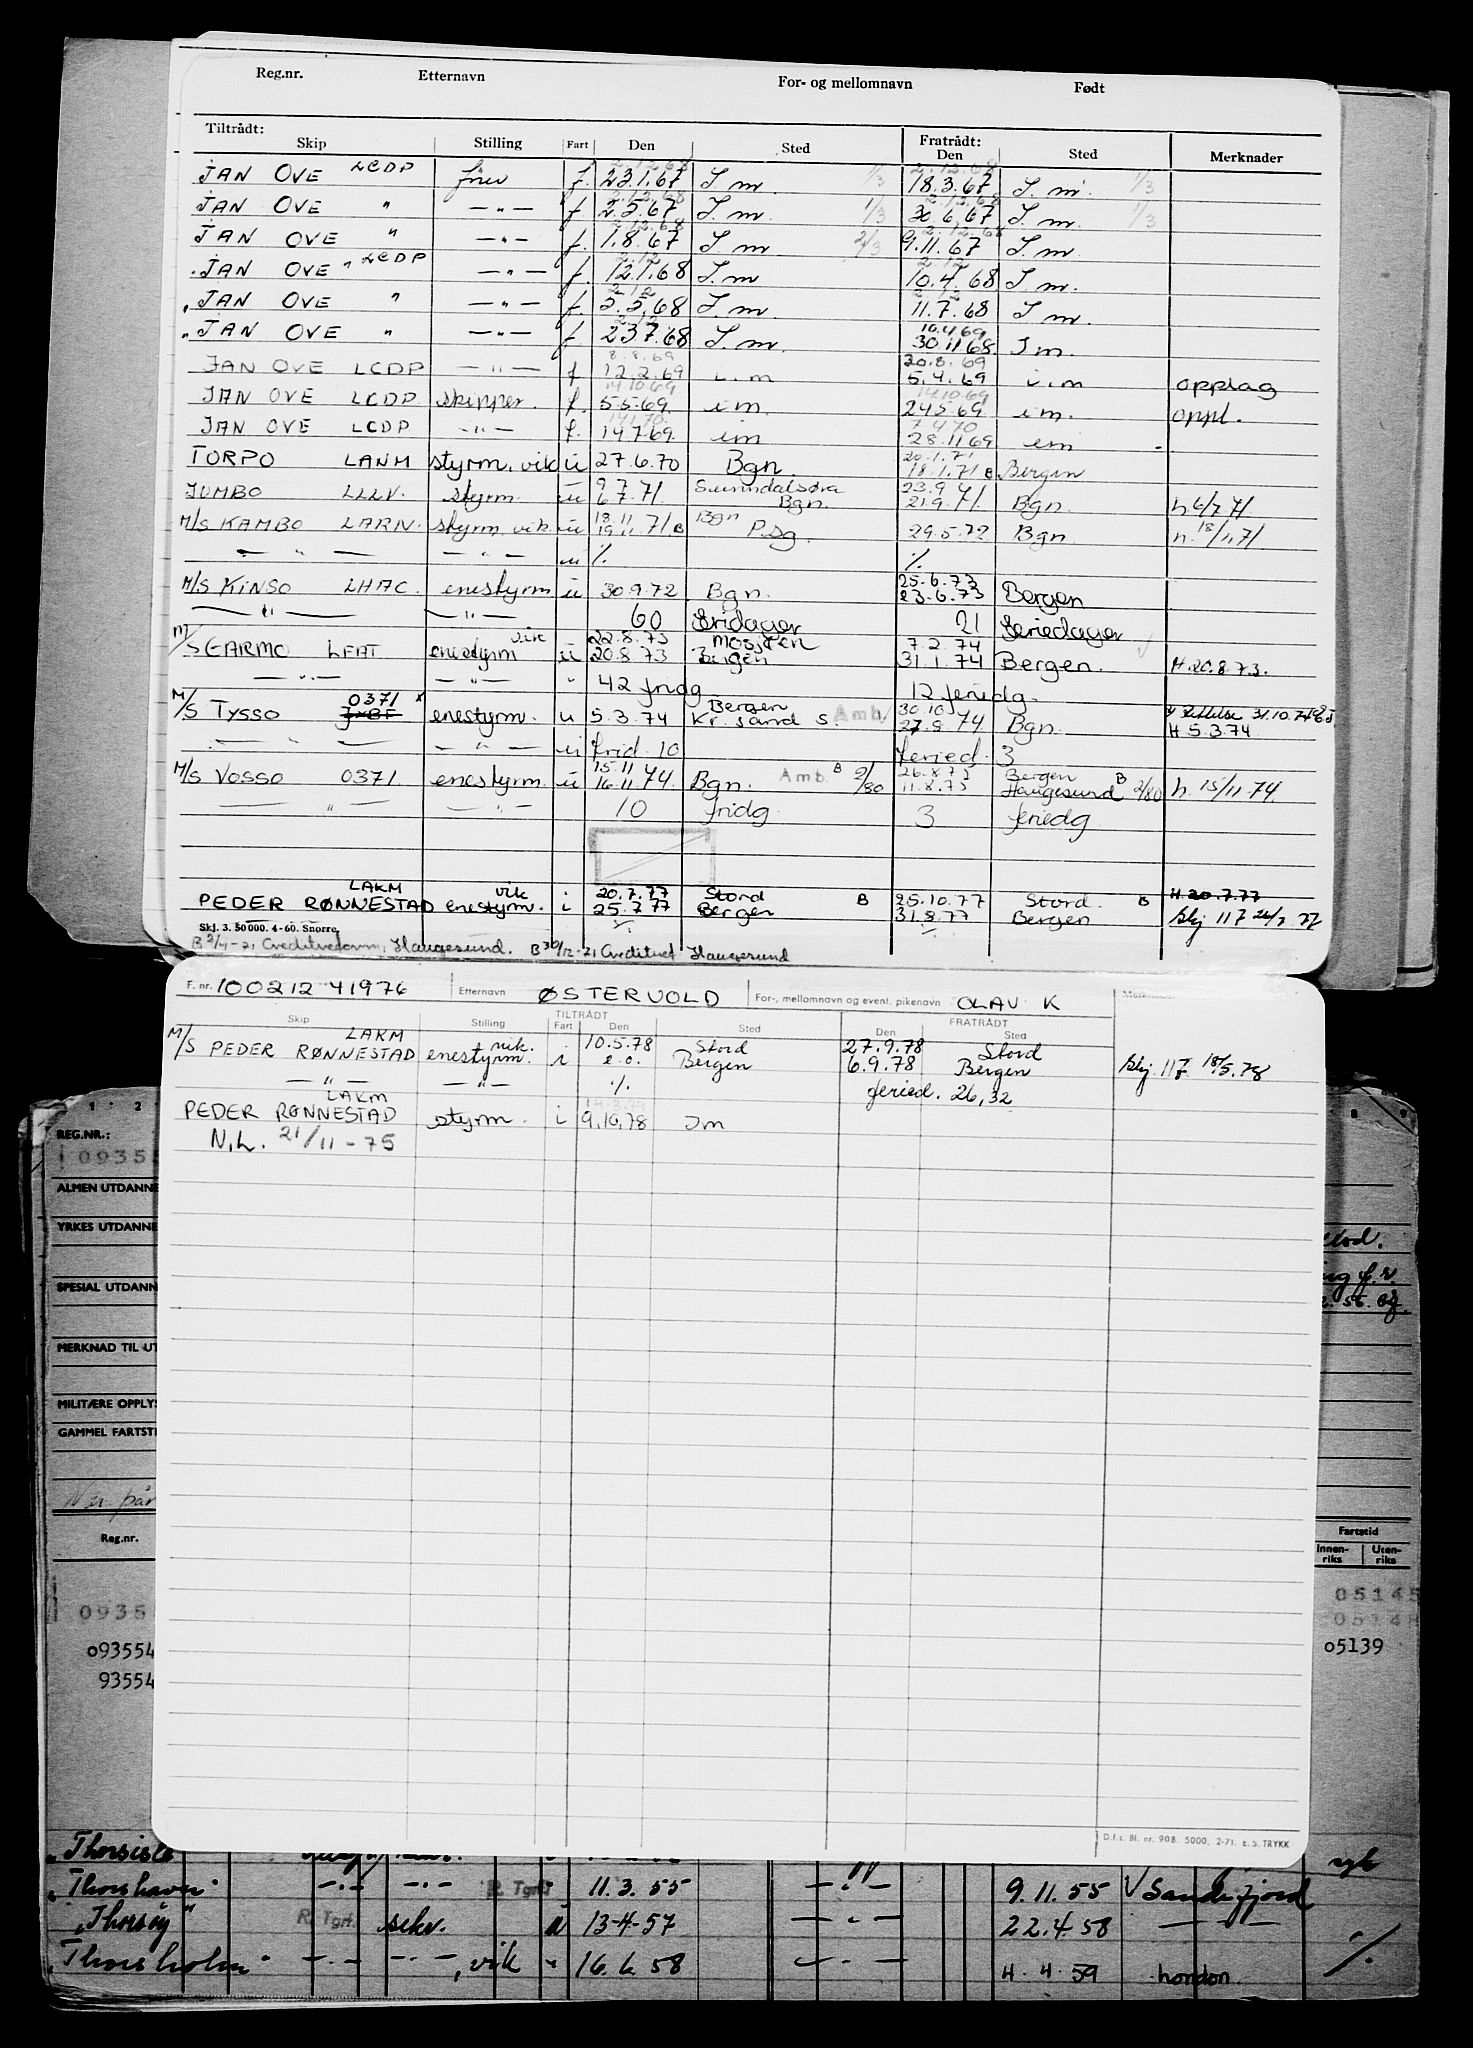 Reg.nr. Etternavn For- og mellomnavn Født
Tiltrådt: Fratrådt:
Skip Stilling Fart Den Sted Den Sted Merknader
2.12.68 2.12.68
JAN OVE LCDP fører f. 23.1.67 I.m. 1/3 18.3.67 I.m. 1/3
2.12.68 2.12.68
JAN OVE " —"— f. 2.5.67 I.m. 1/3 30.6.67 I.m. 1/3
2.12.68 2.12.68
JAN OVE " —"— f. 1.8.67 I.m 2/3 9.11.67 I.m
2.12 2.12
JAN OVE " LCDP —"— f. 12.1.68 I.m 10.4.68 I.m.
2.12 2.12
JAN OVE " —"— f. 2.5.68 I.m 11.7.68 I.m.
2.12 10.4.69
JAN OVE " —"— f 23.7.68 I.m. 30.11.68 I.m.
8.8.69 20.8.69
JAN OVE LCDP —"— f 12.2.69 i.m 5.4.69 i.m opplag
14.10.69 14.10.69
JAN OVE LCDP skipper. f. 5.5.69. i.m. 24.5.69 i.m. oppl.
14.1.70. 7.4.70
JAN OVE LCDP —"— f. 14.7.69. im 28.11.69 im
20.1.71
TORPO LANM styrm. vik u 27.6.70 Bgn. 18.1.71 B Bergen
9.7.71. Sunndalsøra 23.9.71.
JUMBO LLLV. styrm. u 6.7. Bgn. 21.9. Bgn. h 6/7 71
18.11.71 Bgn
M/S KAMBO LARN. styrm. vik. u 19.11. B P.sg. 29.5.72 Bgn h. 18/11.71
— " — —"— u ·/. ·/.
25.6.73
M/S KINSO LHAC. enestyrm u 30.9.72 Bgn. 23.6.73 Bergen
— " — —"— 60 fridager 21 feriedager
vik 22.8.73 Mosjøen 7.2.74
M/S GARMO LEAT enestyrm u 20.8.73 Bergen 31.1.74 Bergen. H.20.8.73.
— " — —"— " 42 fridg 12 feriedg.
0371 Bergen 30.10
M/S TYSSO enestyrm. u 5.3.74 Kr. sand S. Amb. 27.9.74 Bgn. 31.10.74
H 5.3.74.
— " — —"— u frid. 10 feried. 3
15.11 26.8.75 Bergen B
M/S VOSSO 0371. enestyrm. u 16.11.74. Bgn. Amb. B 2/80 11.8.75 Haugesund 2/80 h. 15/11-74.
— " — —"— 10 fridg. 3 feriedg
LAKM vik 20.7.77 Stord B 25.10.77 Stord. B H 20.7.77
PEDER RØNNESTAD enestyrm. i 25.7.77 Bergen 31.8.77 Bergen Skj 117 26/7 77
·/. ·/.
Skj. 3. 50 000. 4-60. Snorre.
B 2/4-71 Haugesund. B 30/12-71 Creditret Haugesund
F. nr. 100212 41976 Etternavn ØSTERVOLD For-, mellomnavn og event. pikenavn OLAV K Merknader
TILTRÅDT FRATRÅDT
Skip Stilling Fart Den Sted Den Sted
LAKM vik. 10.5.78 Stord 27.9.78 Stord
M/S PEDER RØNNESTAD enestyrm. i e.o. Bergen 6.9.78 Bergen Skj. 117 18/5.78
— " — —"— ·/. feried. 26,32
LAKM
PEDER RØNNESTAD styrm. i 9.10.78 Im
N.L. 21/11-75
D.f.s. Bl. nr. 908. 5000. 2-71. E.S. TRYKK
1 2
REG.NR.:
0935
ALMEN UTDANNE
YRKES UTDANNE
SPESIAL UTDANN
56
MERKNAD TIL UT
MILITÆRE OPPLYS
GAMMEL FARTSTI
Reg.nr. Fartstid
Innen-riks Uten-riks
05145
0935 05148
o93554 o5139
93554
Thorshavn —"— —"— R. Tgrf. 11.3.55 —"— 9.11.55 Sandefjord
"Thorsøy" R. Tgrf. sekr. u 13-4-57 —"— 22.4.58 — —
Thorsholm —"— —"—, vik " 16.6.58 —"— 4.4.59 London. ·/.